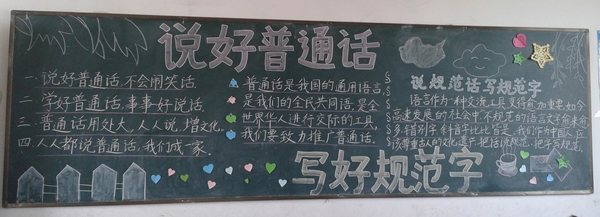 说好普通话
一.说好普通话,不会闹笑话.
二.学好普通话,事事好说话.
三.普通话用处大,人人说,增文化.
四.人人都说普通话,我们成一家.
普通话是我国的通用语言,
是我们的全民共同语,是全
世界华人进行交际的工具,
我们要致力推广普通话.
写好规范字
说规范话写规范字
语言作为一种交流工具变得愈加重要,如今
高速发展的社会中不规范的语言文字愈来愈
多,错别字 比比皆是,我们作为中国人,应
该尊重古人的文化遗产,把话说规范,把字写规范.